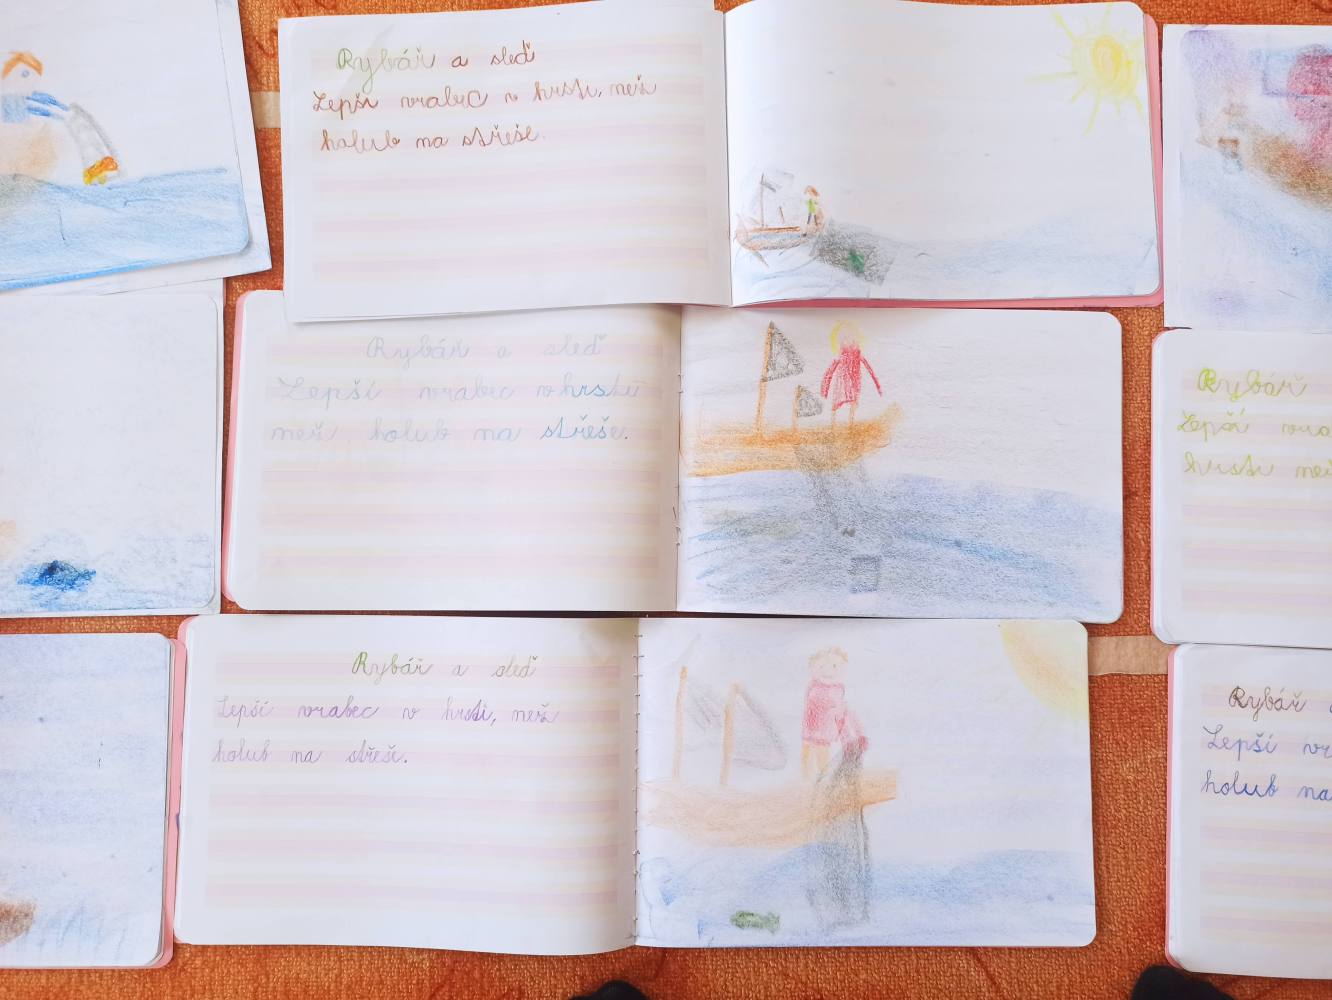 Rybář a sleď
Lepší vrabec v hrsti, než
holub na střeše.
Rybář a sleď
Lepší vrabec v hrsti
než, holub na střeše.
Rybář a sleď
Lepší vrabec v hrsti, než
holub na střeše.
Rybář
Lepší vra
hrsti než
Rybář
Lepší vr
holub na